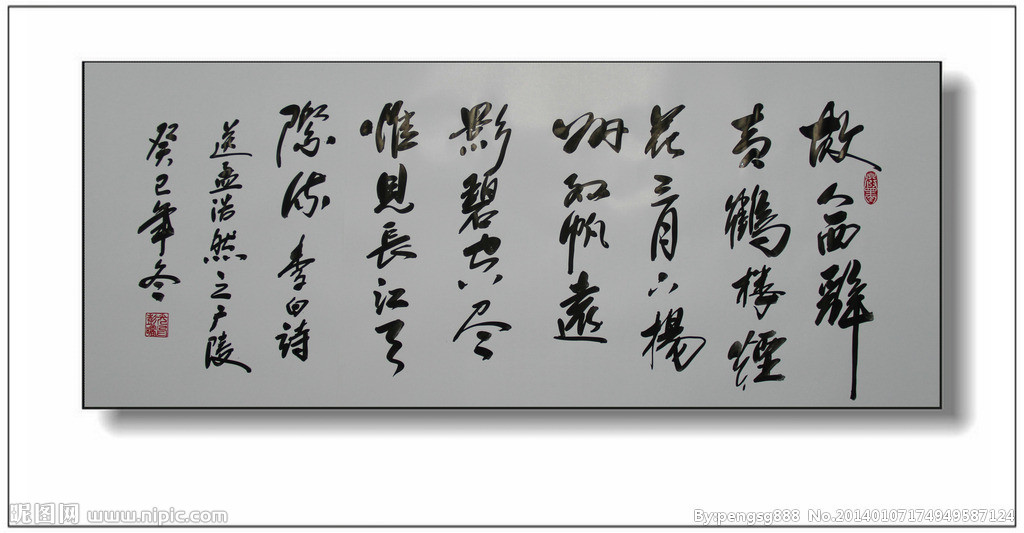 故人西辭
黄鶴楼煙
花三月下揚
州孤帆遠
影碧空尽
惟見長江天
際流 李白詩
送孟浩然之广陵
癸巳年冬
昵图网 www.nipic.com
By:pengsg888 No.20140107174949587124